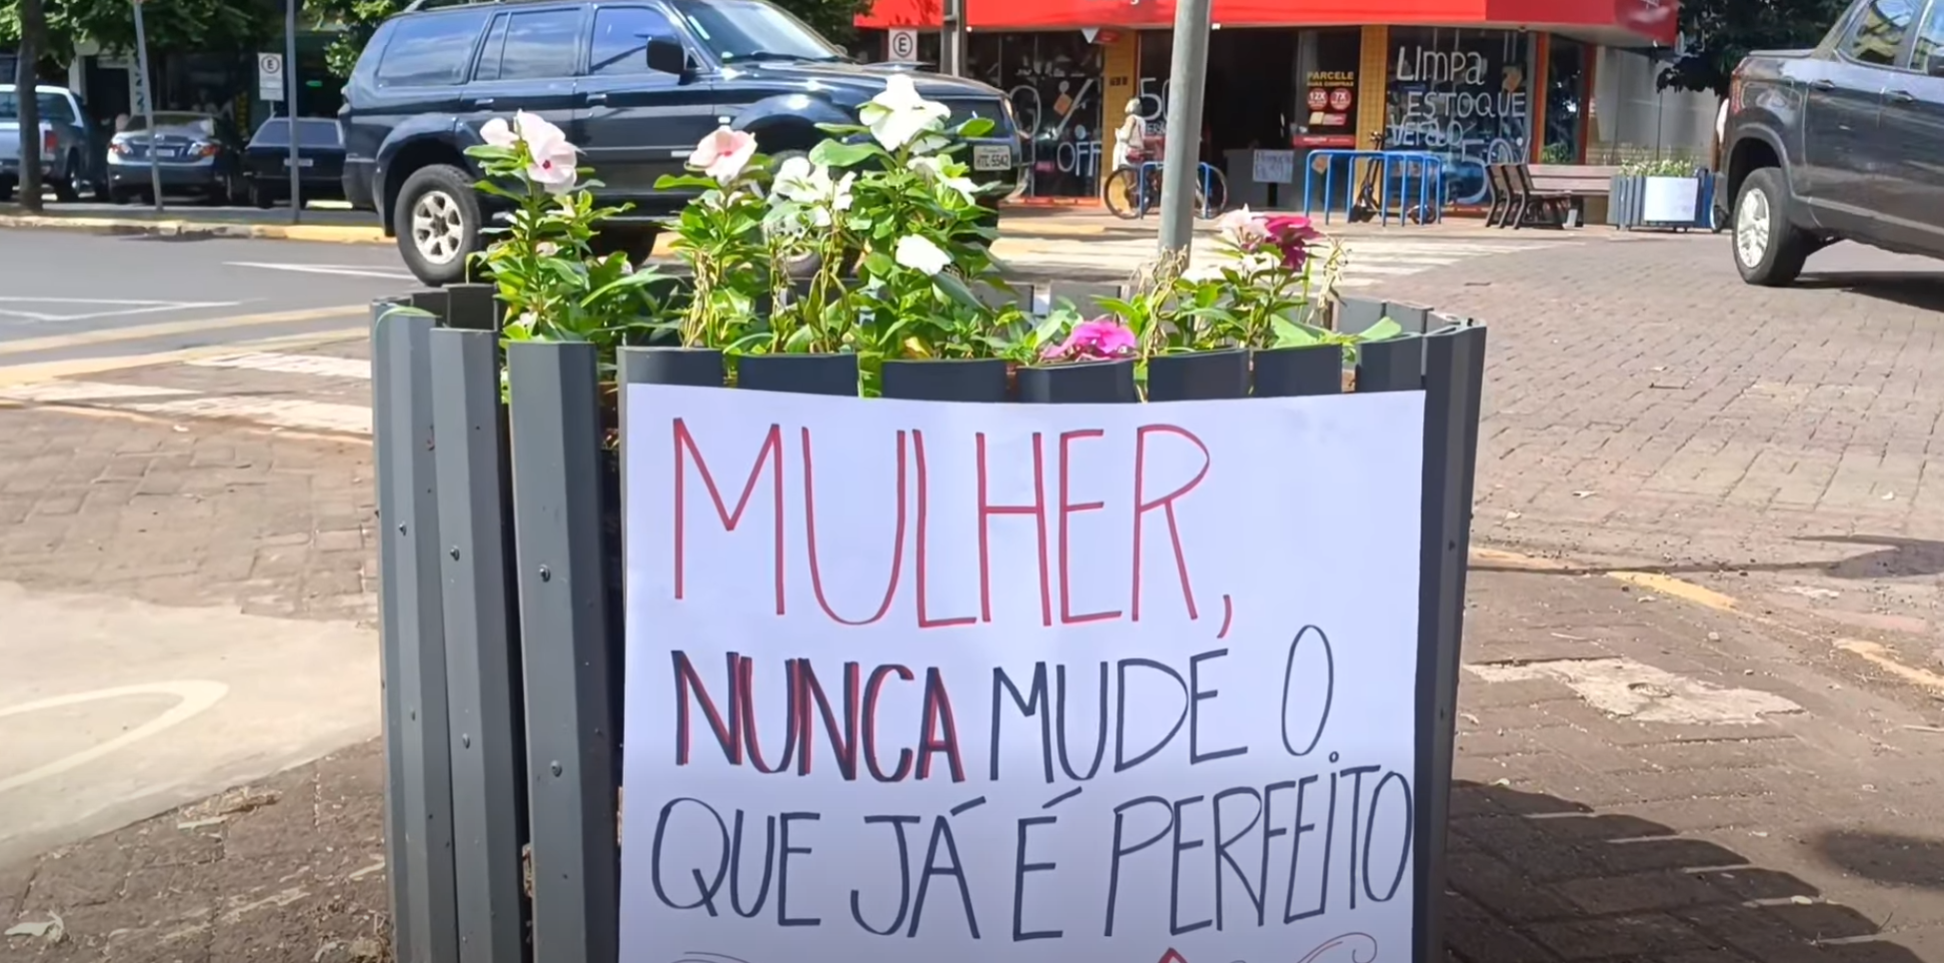 MULHER,
NUNCA MUDE O
QUE JÁ É PERFEITO
LIMPA
ESTOQUE
VERÃO
50%
PARCELE
12X
7X
% OFF
50
E
E